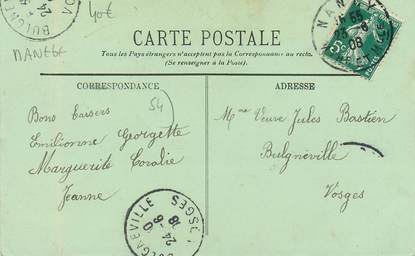 40€
NANCY
CARTE POSTALE
Tous les Pays étrangers n'acceptent pas la Correspondance au recto
(Se renseigner à la Poste).
CORRESPONDANCE
54
Bons baisers
Emilienne Georgette
Marguerite Coralie
Jeanne
ADRESSE
Mme Veuve Jules Bastien
Bulgnéville
Vosges
BULGNÉVILLE
VOSGES
24
8